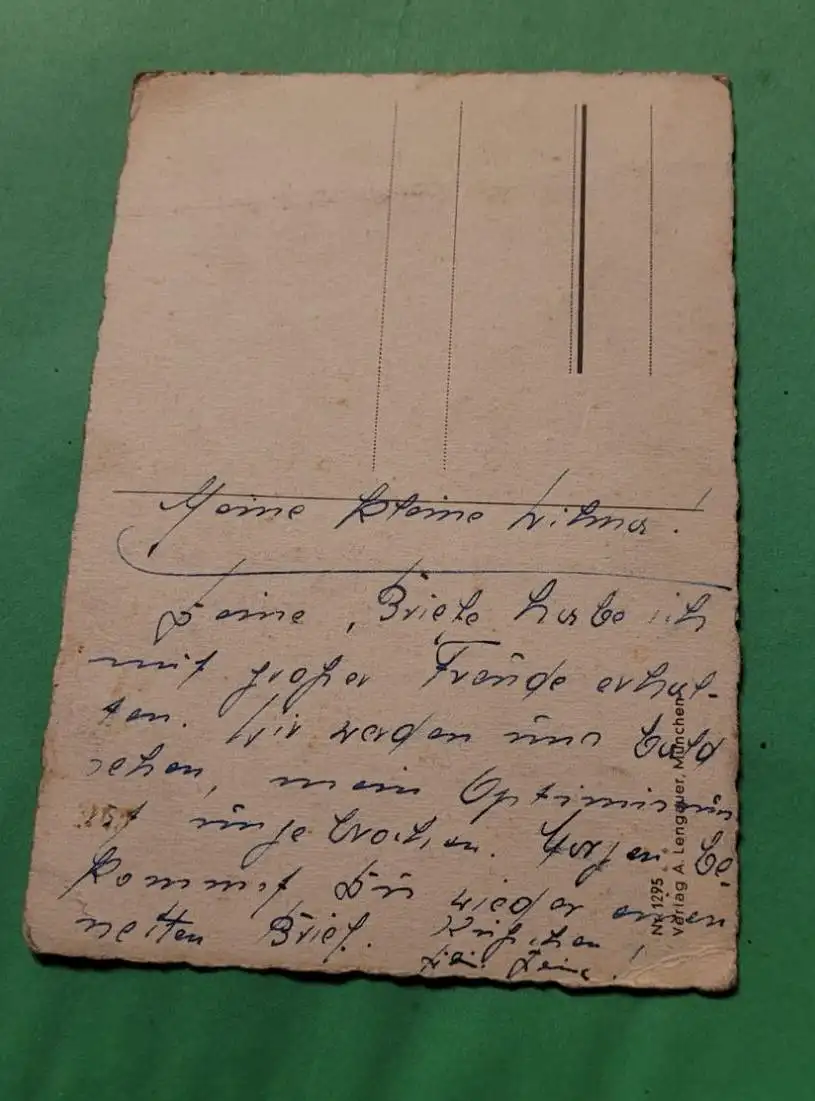 Meine kleine Wilma!
Deine Briefe habe ich
mit großer Freude erhal-
ten. Wir werden uns bald
sehen, mein Optimismus
ist ungebrochen. Morgen be
kommst Du wieder einen
netten Brief. Küßchen
Dein
Nr. 1295
Verlag A. Lengauer, München